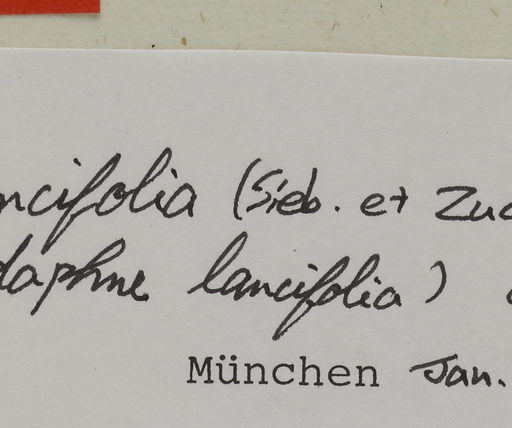 ncifolia (Sieb. et Zuc
daphne lancifolia)
München Jan.